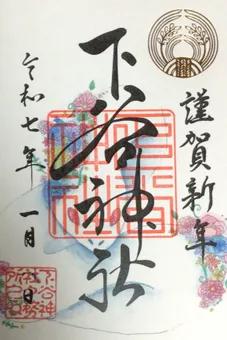 謹賀新年
下谷神社
令和七年 一月 日
下谷神社